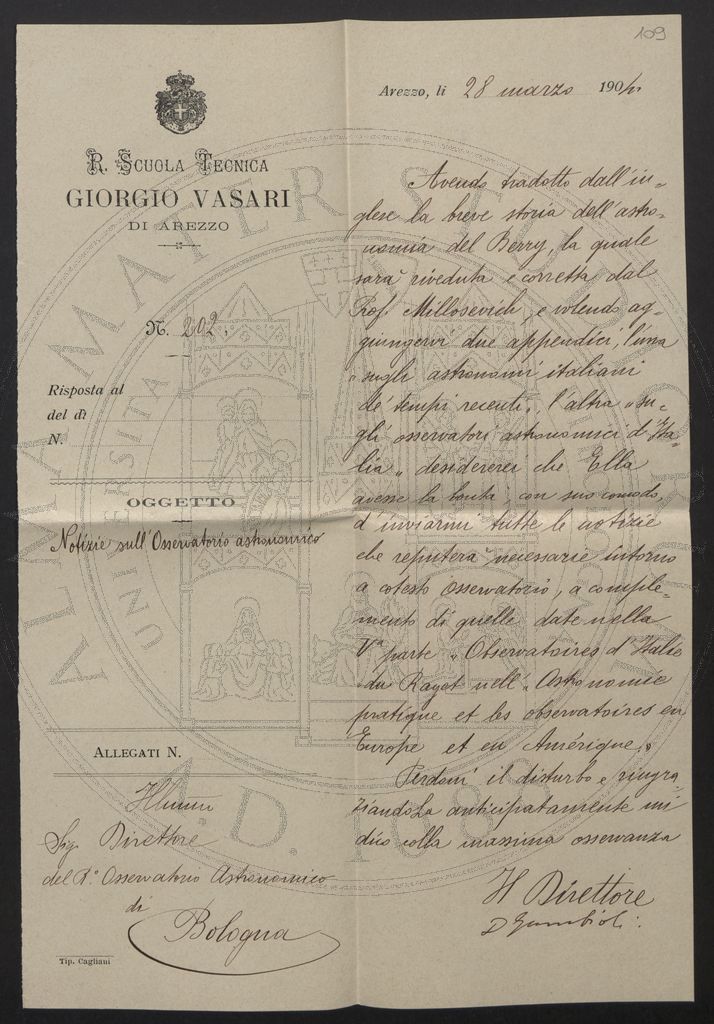 109
R. SCUOLA TECNICA
GIORGIO VASARI
DI AREZZO
N. 202.
Risposta al
del dì
N.
OGGETTO
Notizie sull'Osservatorio astronomico
ALLEGATI N.
Ill.mo
Sig. Direttore
del R.o Osservatorio Astronomico
di
Bologna
Tip. Cagliani
Arezzo, li 28 marzo 190
Avendo tradotto dall'in-
glese la breve storia dell'astro-
nomia del Berry, la quale
sarà riveduta e corretta dal
Prof. Millosevich, e volendo ag-
giungervi due appendici, l'una
"sugli astronomi italiani
de' tempi recenti", l'altra "su-
gli osservatori astronomici d'Ita-
lia" desidererei che Ella
avesse la bontà, con suo comodo,
d'inviarmi tutte le notizie
che reputerà necessarie intorno
a cotesto osservatorio, a comple-
mento di quelle date nella
Va parte "Observatoires d'Italie
du Rayet nell'"Astronomie
pratique et les observatoires en
Europe et en Amérique."
Perdoni il disturbo e ringra
ziandola anticipatamente mi
dico colla massima osservanza
Il Direttore
D Gambioli
ALMA MATER STUDIORUM
UNIVERSITA
A.D. 1088